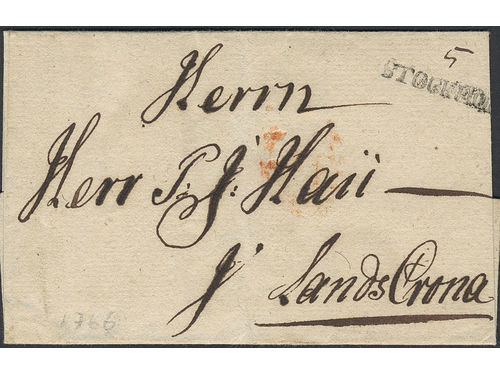 5
STOCKHO
Herrn
Herr P: J: Haii
j LandsCrona
1766